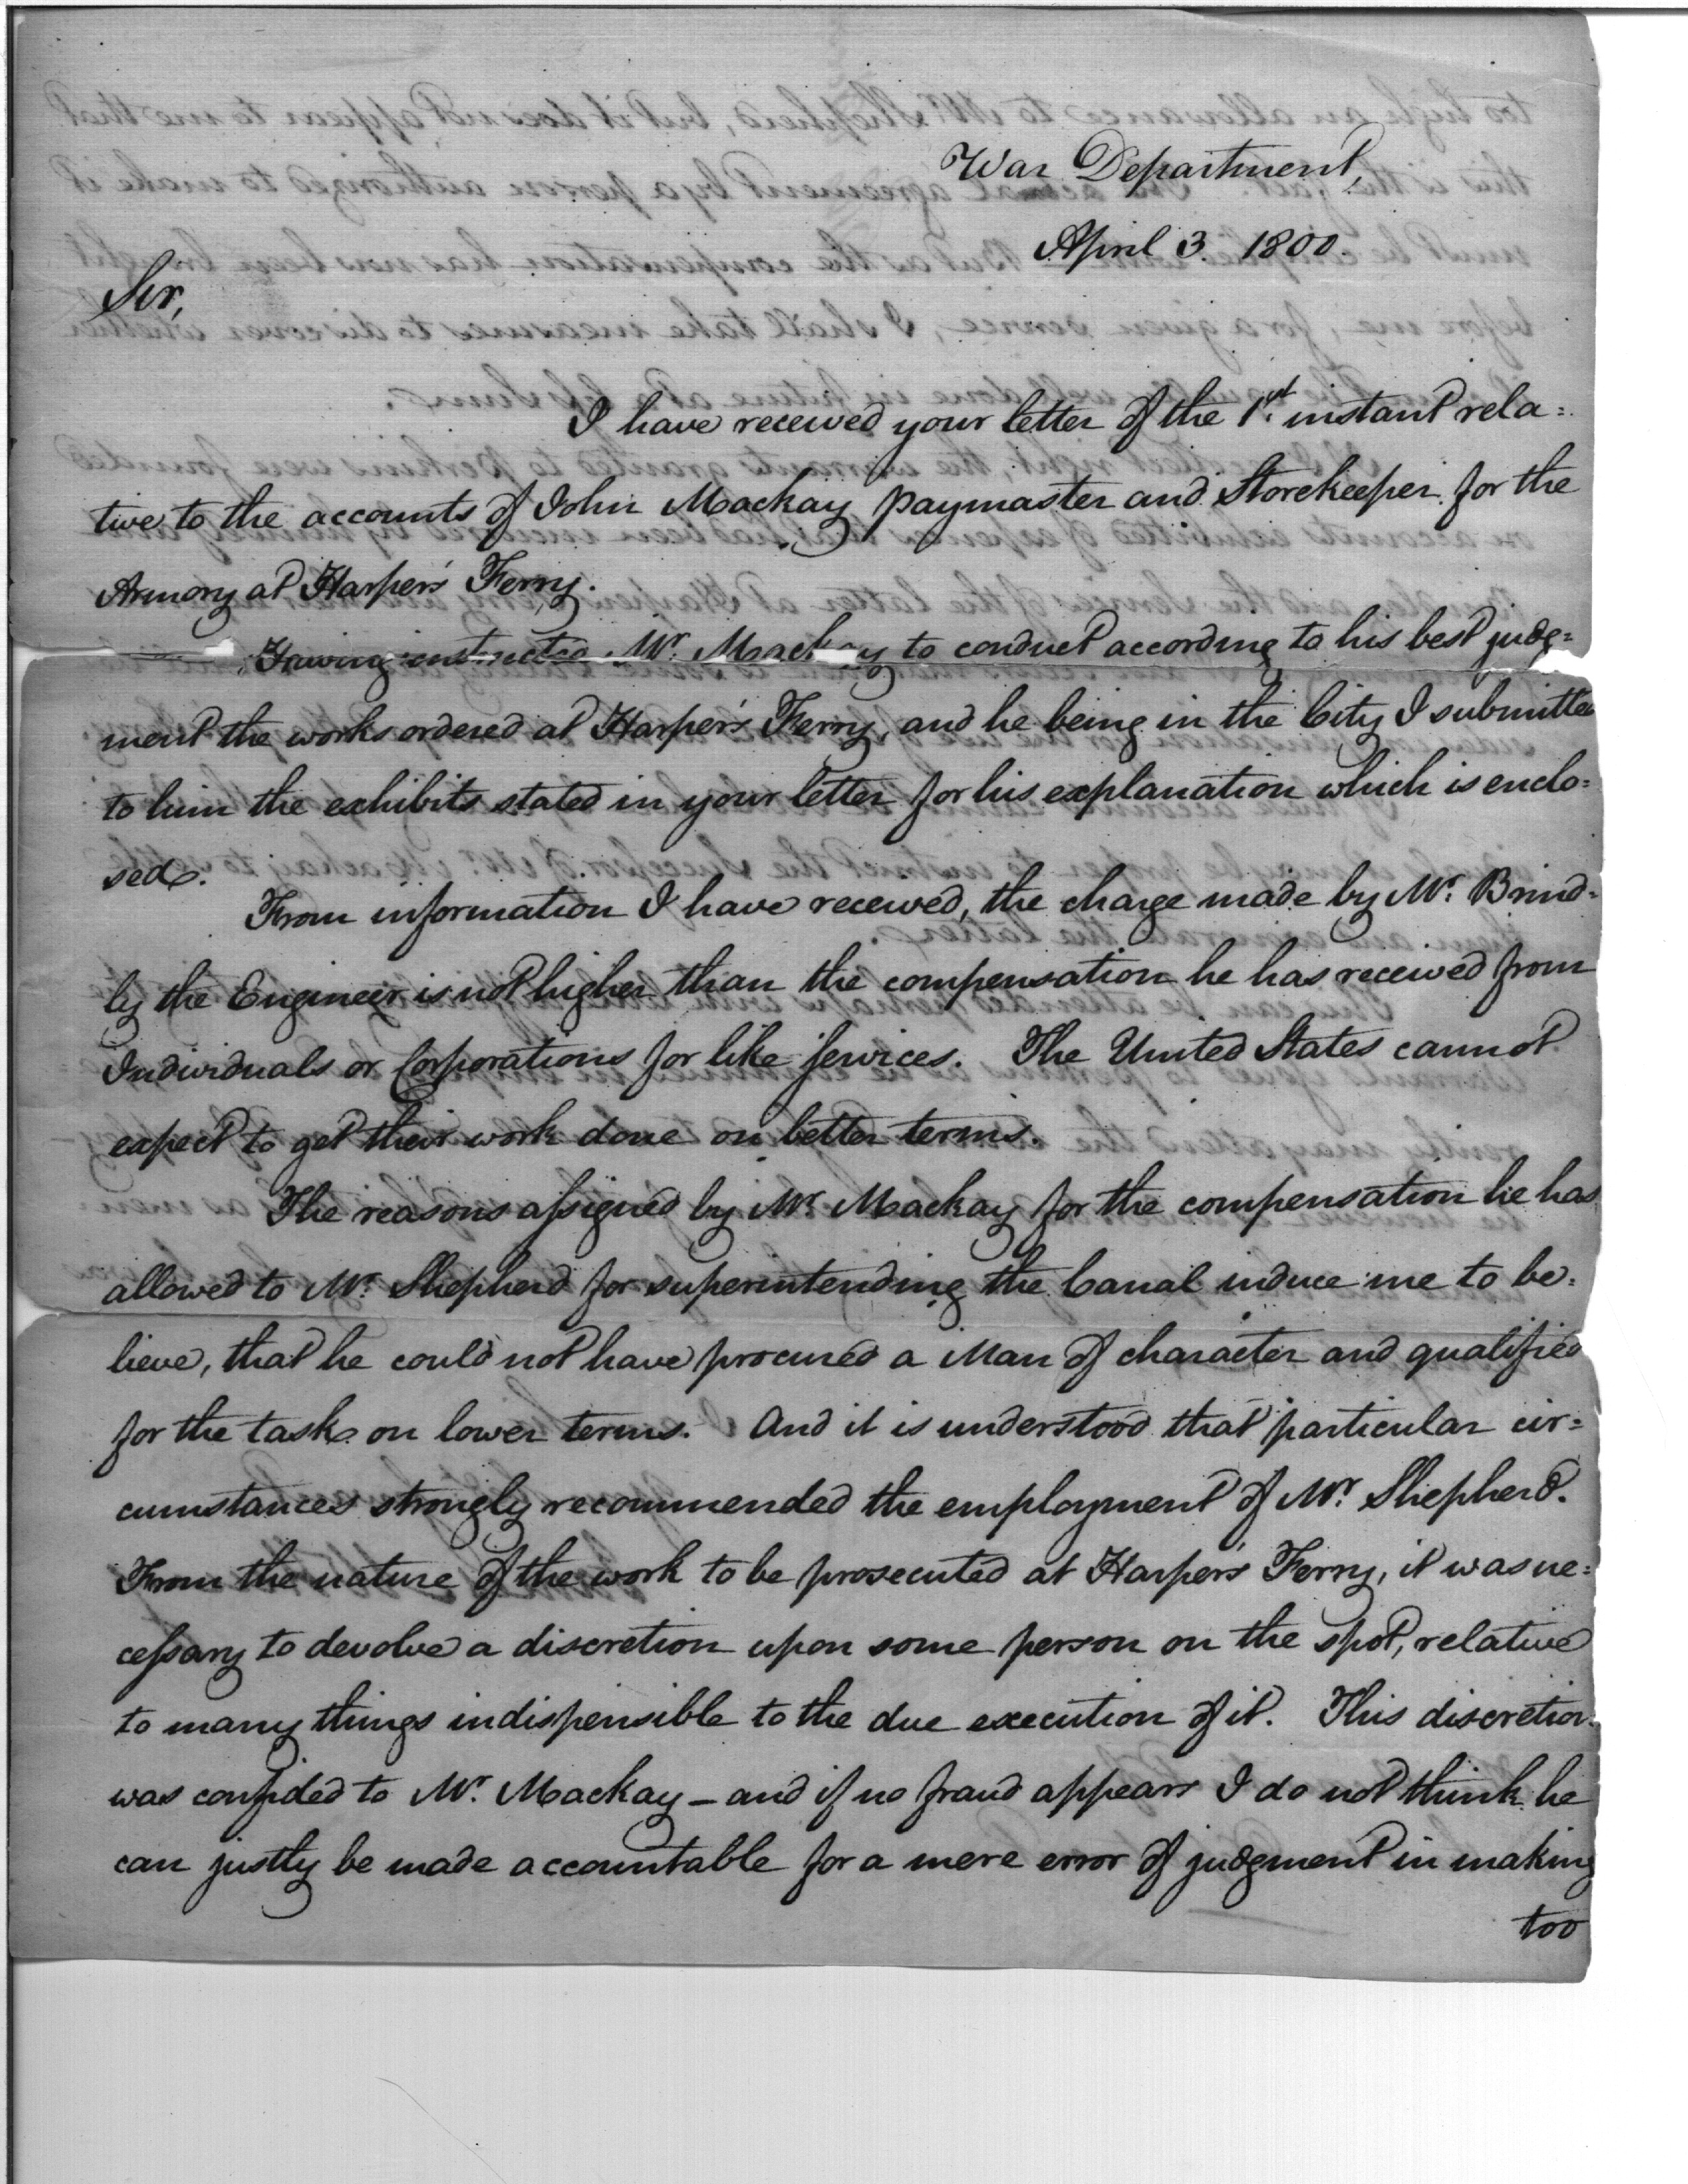 War Department,
April 3. 1800.
Sir,
I have received your letter of the 1st. instant rela=
tive to the accounts of John Mackay paymaster and Storekeeper for the
Armory at Harper's Ferry.
Having instructed Mr. Mackay to conduct according to his best judg=
ment the works ordered at Harper's Ferry, and he being in the City I submitted
to him the exhibits stated in your letter for his explanation which is enclo=
sed.
From information I have received, the charge made by Mr. Brind=
ly the Engineer is not higher than the compensation he has received from
Individuals or Corporations for like services. The United States cannot
expect to get their work done on better terms.
The reasons assigned by Mr. Mackay for the compensation he has
allowed to Mr. Shepherd for superintending the Canal induce me to be=
lieve, that he could not have procured a Man of character and qualified
for the task on lower terms. And it is understood that particular cir=
cumstances strongly recommended the employment of Mr. Shepherd.
From the nature of the work to be prosecuted at Harper's Ferry, it was ne=
cessary to devolve a discretion upon some person on the spot, relative
to many things indispensible to the due execution of it. This discretion
was confided to Mr. Mackay – and if no fraud appears I do not think he
can justly be made accountable for a mere error of judgment in making
too